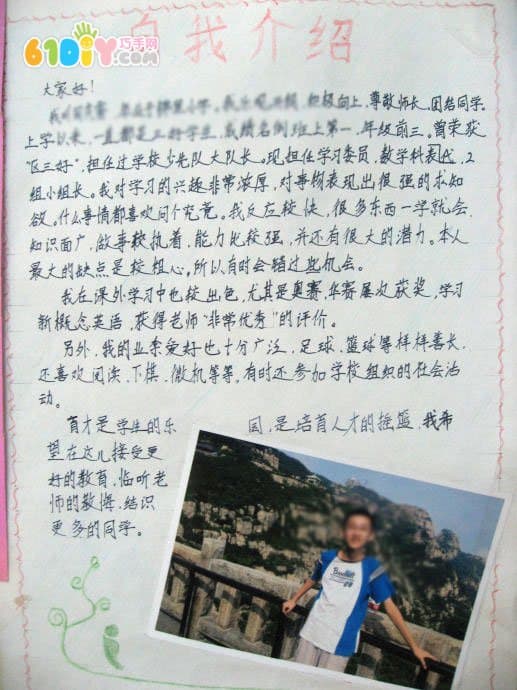 自我介绍
61DIY巧手网
大家好！
积极向上，尊敬师长，团结同学。
上学以来，一直都是三好学生，成绩名例班上第一，年级前三。曾荣获
“区三好”，担任过学校少先队大队长。现担任学习委员，数学科代表，2
组小组长。我对学习的兴趣非常浓厚，对事物表现出很强的求知
欲。什么事情都喜欢问个究竟。我反应较快，很多东西一学就会，
知识面广，做事较执着，能力比较强，并还有很大的潜力。本人
最大的缺点是较粗心。所以有时会错过些机会。
我在课外学习中也较出色，尤其是奥赛，华赛屡次获奖，学习
新概念英语，获得老师“非常优秀”的评价。
另外，我的业余爱好也十分广泛，足球、篮球等样样善长，
还喜欢阅读、下棋、微机等等，有时还参加学校组织的社会活
动。
育才是学生的乐园，是培育人才的摇篮，我希
望在这儿接受更
好的教育，临听老
师的教悔，结识
更多的同学。